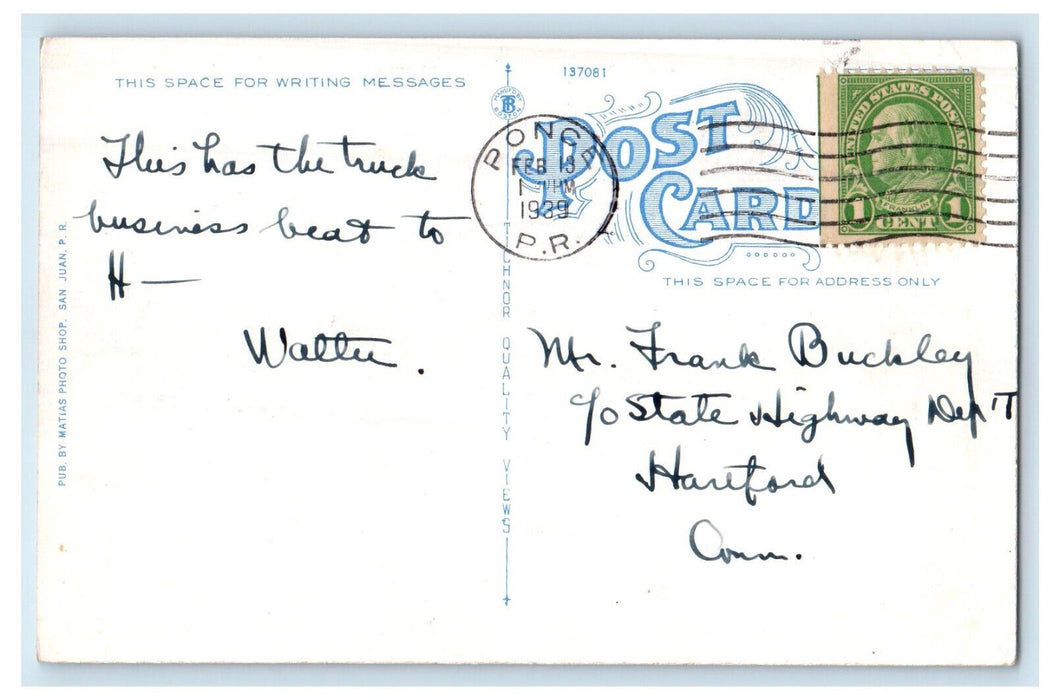 THIS SPACE FOR WRITING MESSAGES
This has the truck
business beat to
H —
Walter.
PUB. BY MATIAS PHOTO SHOP, SAN JUAN, P. R.
MANUF'D BY
TB
BOSTON
TICHNOR QUALITY VIEWS
137081
POST
CARD
PONCE
FEB 13
1 PM
1939
P.R.
UNITED STATES POSTAGE
FRANKLIN
1 CENT 1
THIS SPACE FOR ADDRESS ONLY
Mr. Frank Buckley
c/o State Highway Dep'T
Hartford
Conn.